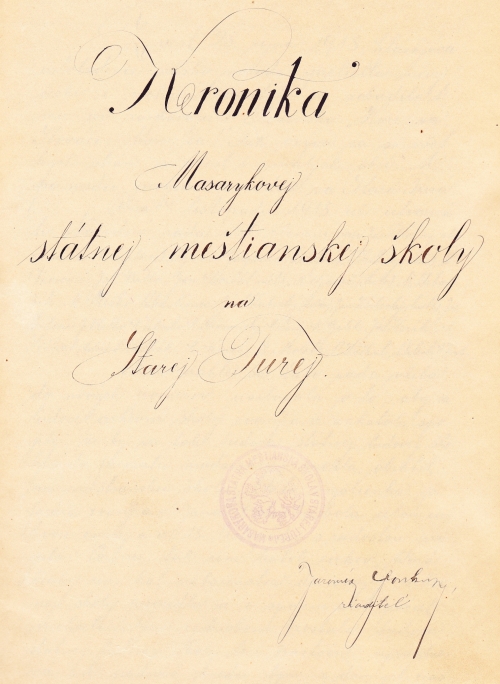 Kronika
Masarykovej
státnej meštianskej školy
na
Starej Turej.
riaditeľ